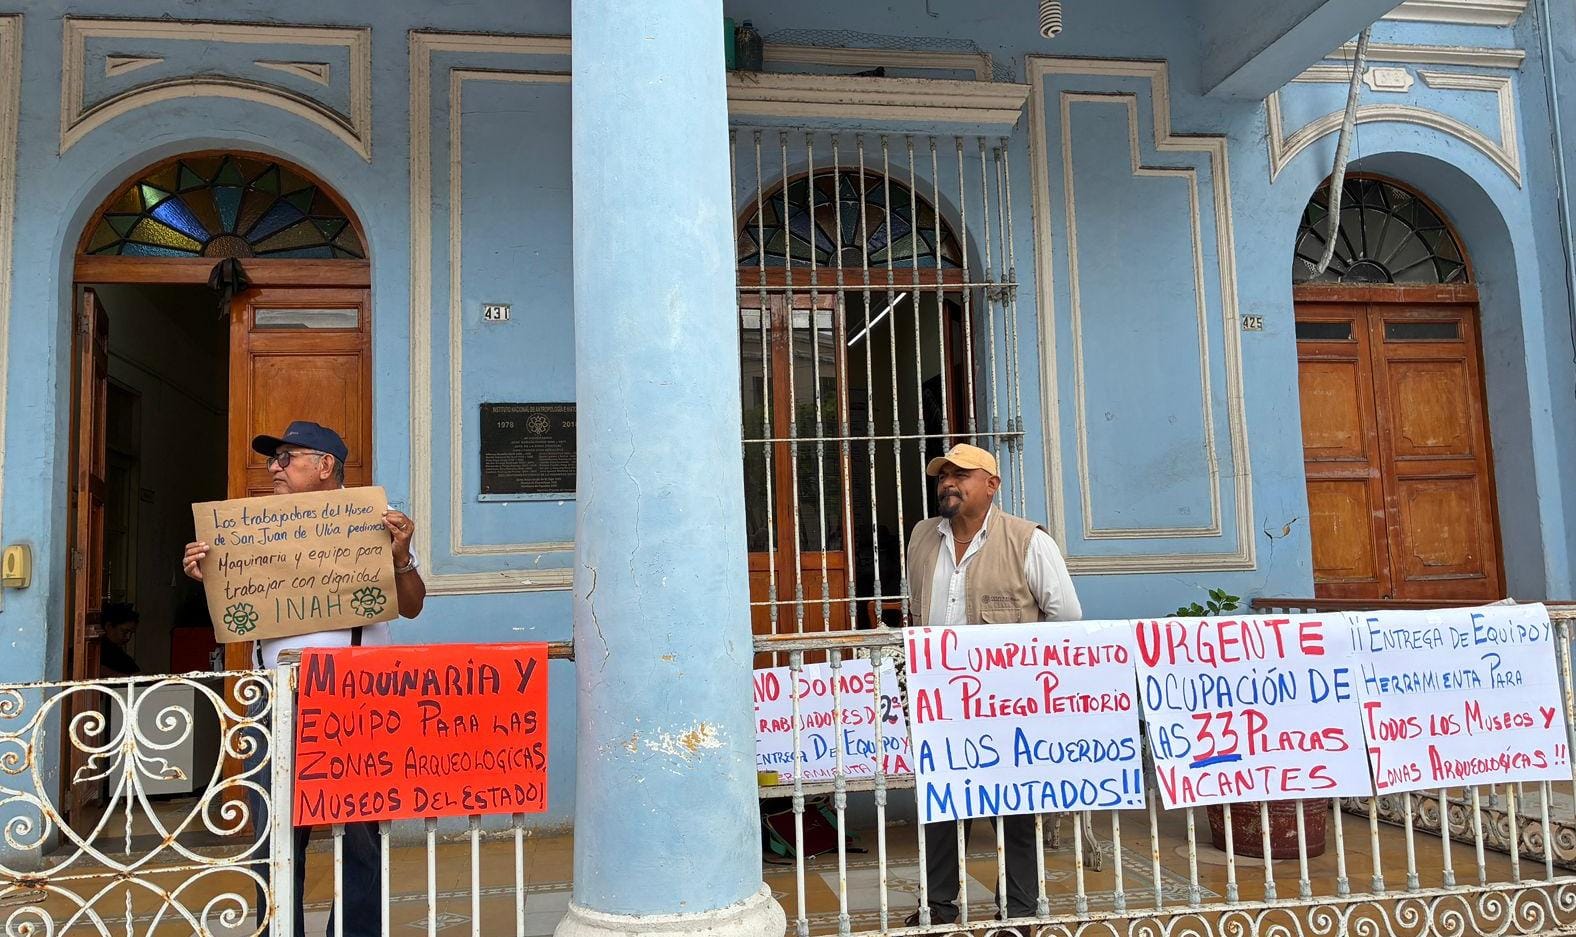 431
425
INSTITUTO NACIONAL DE ANTROPOLOGIA E
1978
Los trabajadores del Museo
de San Juan de Ulúa pedimos
Maquinaria y equipo para
trabajar con dignidad
INAH
MAQUINARIA Y
EQUIPO PARA LAS
ZONAS ARQUEOLOGICAS,
MUSEOS DEL ESTADO!
NO SOMOS
TRABAJADORES D 2ª
ENTREGA DE EQUIPO Y
HERRAMIENTA YA
¡¡CUMPLIMIENTO
AL PLIEGO PETITORIO
A LOS ACUERDOS
MINUTADOS!!
URGENTE
OCUPACIÓN DE
LAS 33 PLAZAS
VACANTES
¡¡ENTREGA DE EQUIPO Y
HERRAMIENTA PARA
TODOS LOS MUSEOS Y
ZONAS ARQUEOLÓGICAS!!